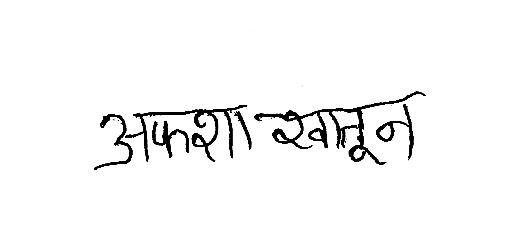 अफशा खातून